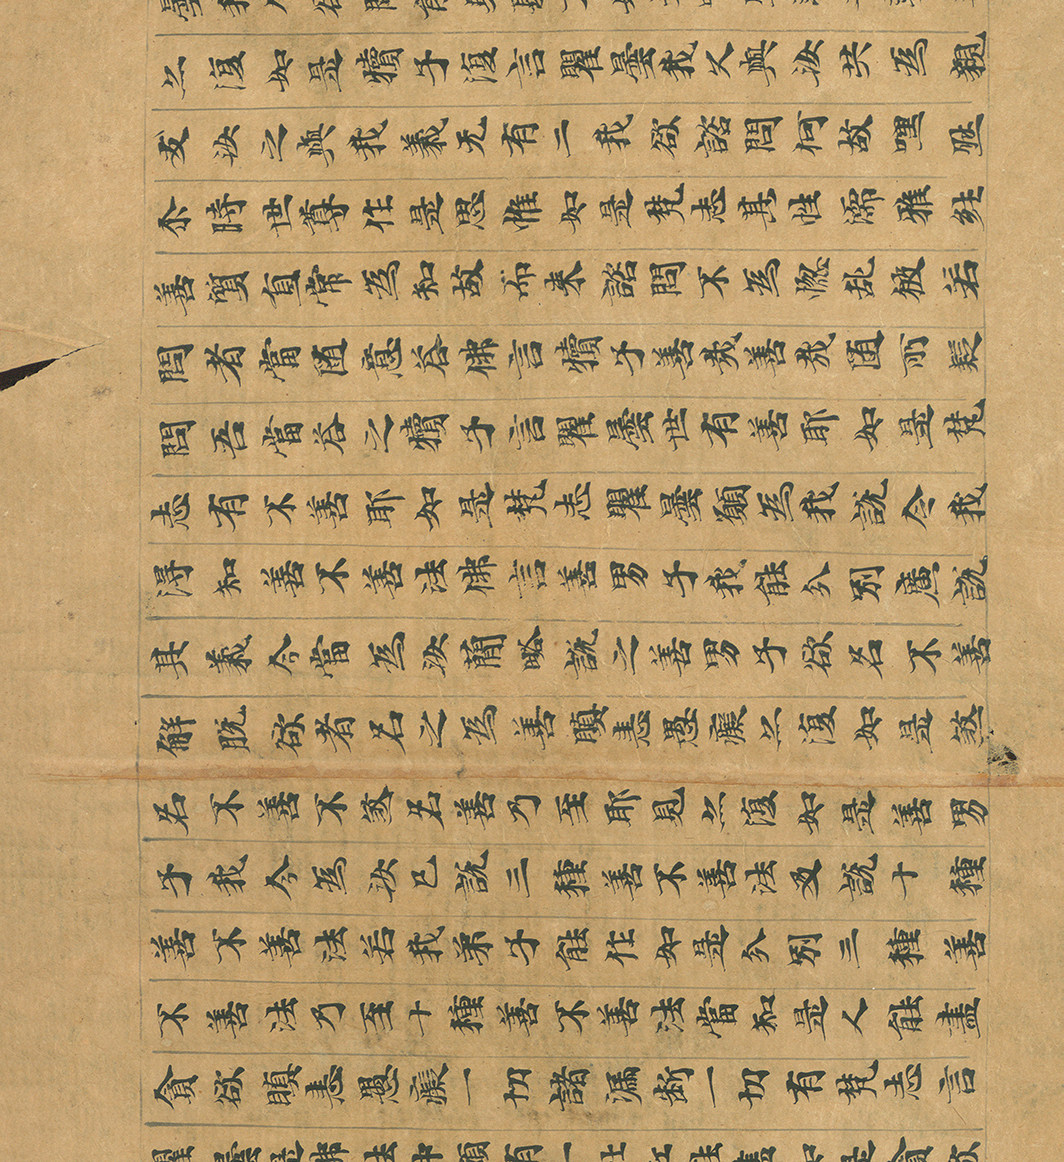 亦復如是犢子復言瞿曇我久與汝共為親
友汝之與我義无有二我欲諮問何故嘿然
尒時世尊作是思惟如是梵志其性濡雅純
善質直常為知故而來諮問不為惱乱彼若
問者當随意荅佛言犢子善哉善哉随所疑
問吾當荅之犢子言瞿曇世有善耶如是梵
志有不善耶如是梵志瞿曇願為我說令我
得知善不善法佛言善男子我能分別廣說
其義今當為汝簡略說之善男子欲名不善
解脫欲者名之為善瞋恚愚癡亦復如是煞
名不善不煞名善乃至耶見亦復如是善男
子我今為汝已說三種善不善法及說十種
善不善法若我弟子能作如是分別三種善
不善法乃至十種善不善法當知是人能盡
貪欲瞋恚愚癡一切諸漏断一切有梵志言